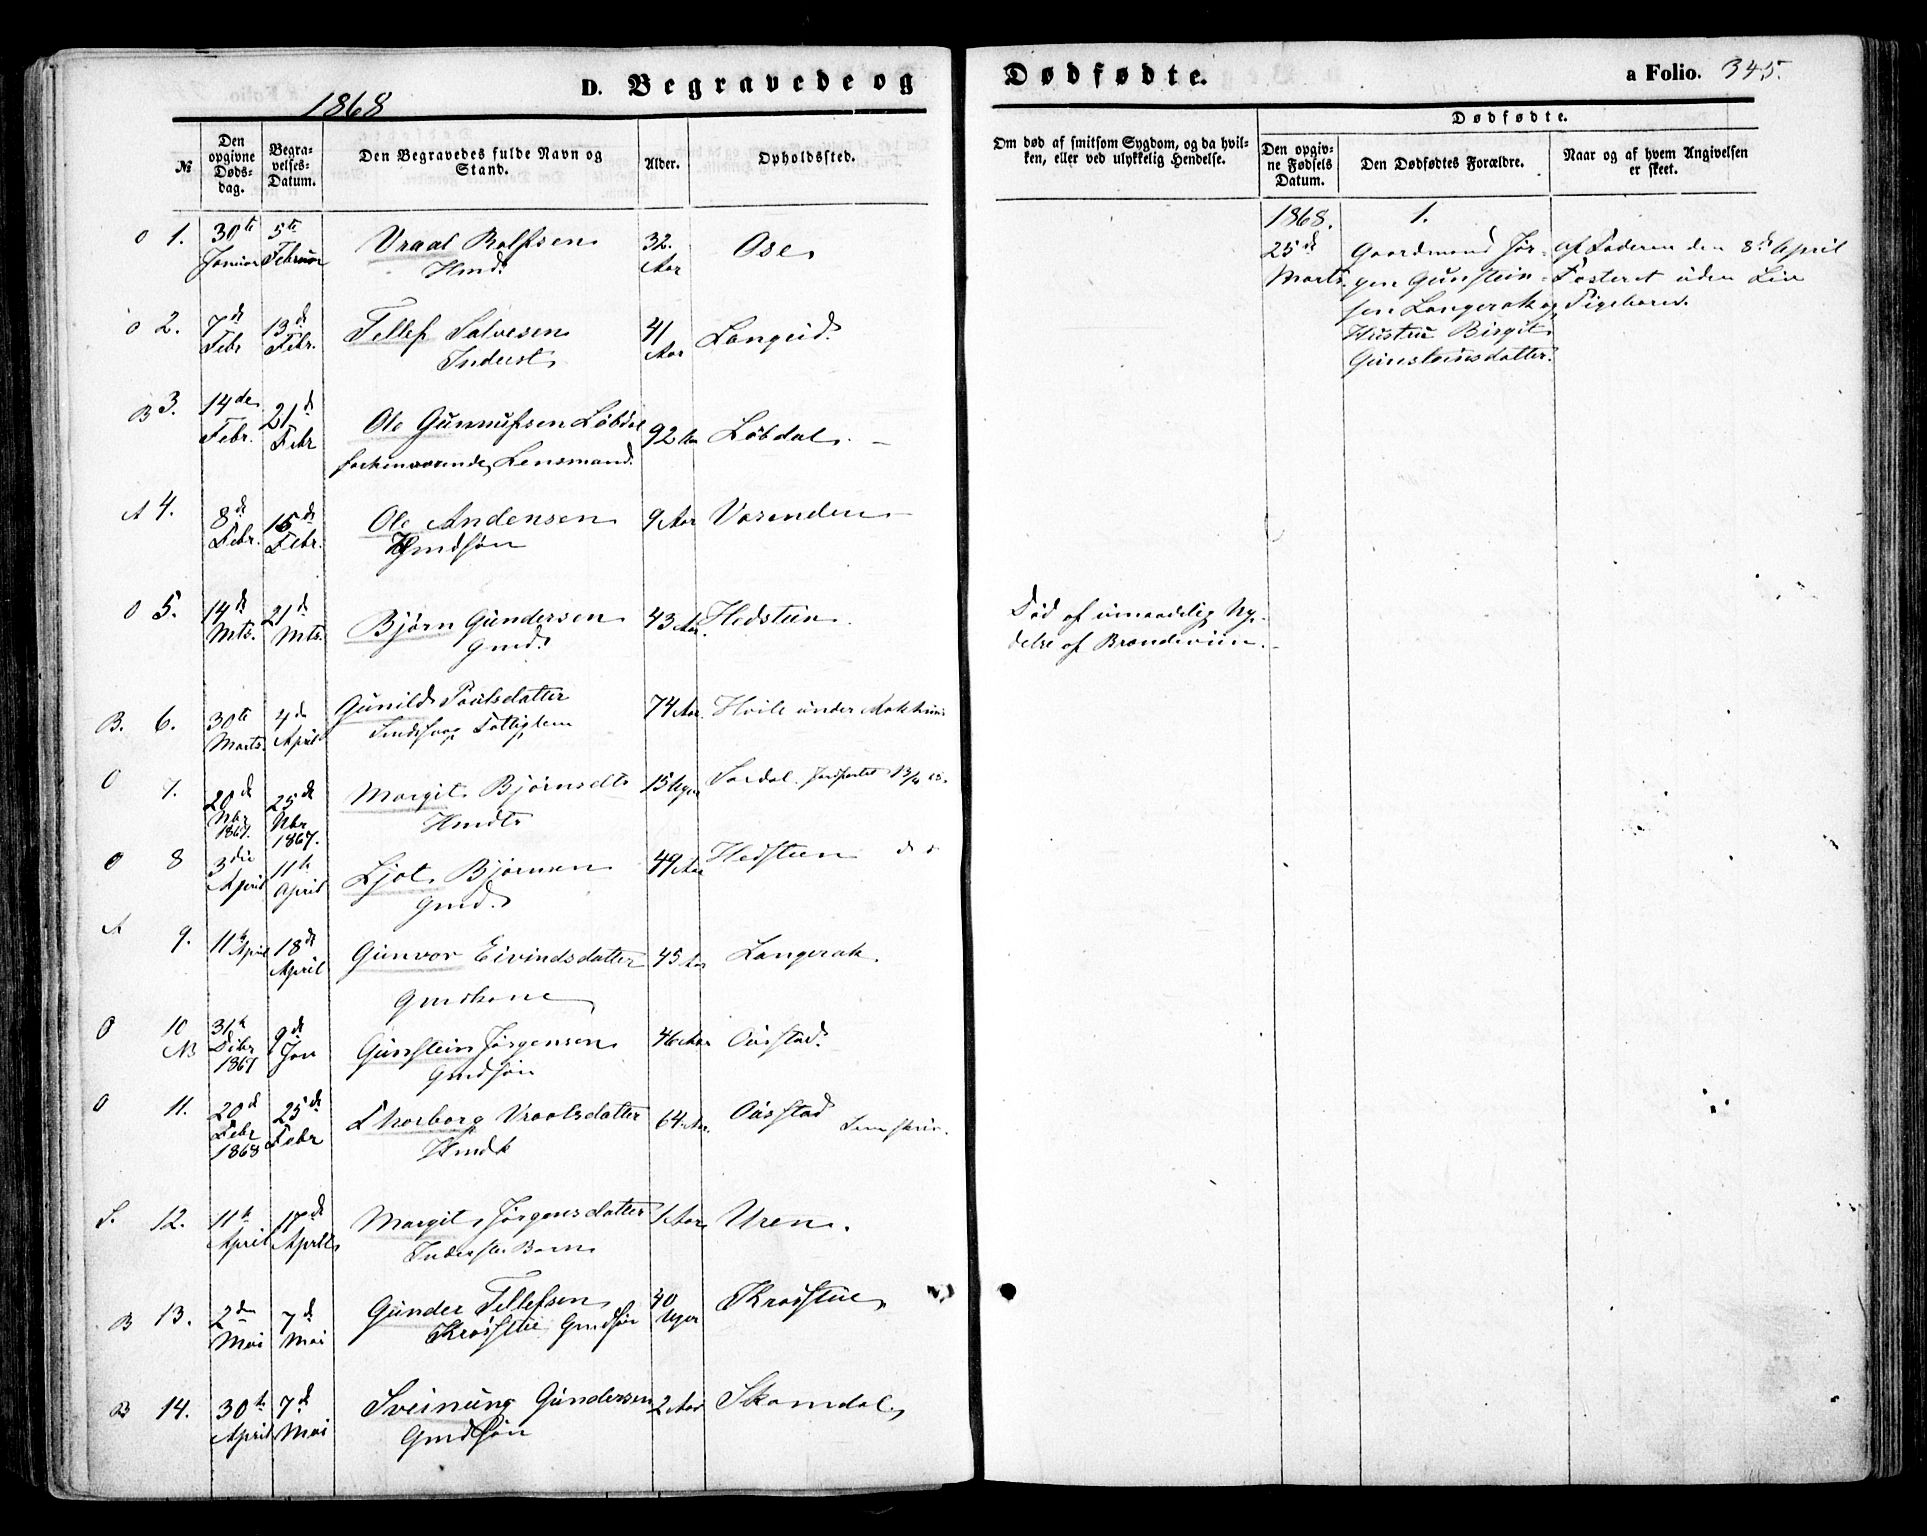 D. Begravede og Dødfødte.
a Folio. 345.
1868
№
Den opgivne Døds-dag.
Begra-velses-Datum.
Den Begravedes fulde Navn og Stand.
Alder.
Opholdssted.
Om død af smitsom Sygdom, og da hvil-
ken, eller ved ulykkelig Hendelse.
Dødfødte.
Den opgiv-ne Fødsels Datum.
Den Dødfødtes Forældre.
Naar og af hvem Angivelsen er skeet.
O 1. 30te Januar 5te Februar Vraal Rolfsen 32. Aar Ose
Hmd.
O 2. 7de Febr 13de Febr. Tellef Salvesen 41 Aar Langeid.
Inderst
B 3. 14de Febr. 21de Febr Ole Gunnufsen Løbdal 92 Aar Løbdal. –
forhenværende Lensmand.
A 4. 8de Febr. 15de Febr. Ole Andersen 9 Aar
Gmdsøn
O 5. 14de Mts. 21de Mts. Bjørn Gundersen 43 Aar. Hedstein.
Gmd.
Død af umaadelig Ny-
delse af Brændeviin. –
B. 6. 30te Marts. 4de April Gunild Poulsdatter 74 Aar. Hvile under
Sindssvag Fattiglem
O 7. 20de Nbr 1867. 25de Nbr 1867. Margit Bjørnsdtr 15 Uger Sordal. Jordfæstet
Hmdtr
O 8 3die April 11te April Ljot Bjørnsen 49 Aar Hedstein do
Gmd.
A 9. 11te April 18de April Gunvor Eivindsdatter 45 Aar Langerak.
Gmdkone
O 10 NB 31te Dcbr 1867 9de Jan Gunstein Jørgensen 46 Aar Øistad.
Gmdsøn
O 11. 20de Febr 1868 25de Febr Thorborg Vraalsdatter 64 Aar. Øistad
Hmdk
S. 12. 11te April 17de April Margit Jørgensdatter 1 Aar Uren.
Inderste Barn
B 13. 2den Mai 7de Mai Gunder Tellefsen 40 Uger Kråsstue
Kråsstue Gmdsøn
B 14. 30te April 7de Mai Sveinung Gundersen 2 Aar Skomdal
Gmdsøn
1868. 1.
25de Marts. Gaardmand Jør-
gen Gunstein-
sen Langerak og
Hustru Birgit
Gunsteinsdatter.
af Faderen den 8de April
Fosteret uden Liv
Pigebarn.